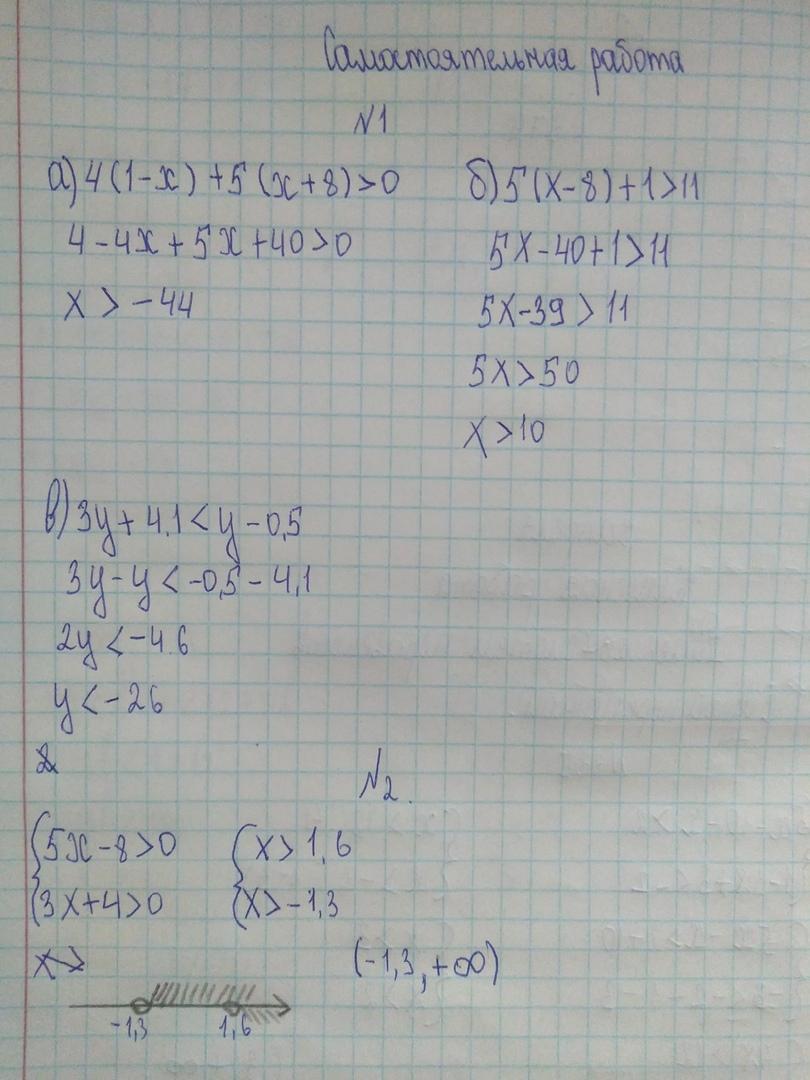 Самостоятельная работа
№1
а) 4(1-x)+5(x+8)>0
4-4x+5x+40>0
x>-44
б) 5(x-8)+1>11
5x-40+1>11
5x-39>11
5x>50
x>10
в) 3y+4.1<y-0,5
3y-y<-0,5-4,1
2y<-4.6
y<-26
№2.
5x-8>0 x>1,6
3x+4>0 x>-1,3
x> (-1,3,+∞)
-1,3 1,6